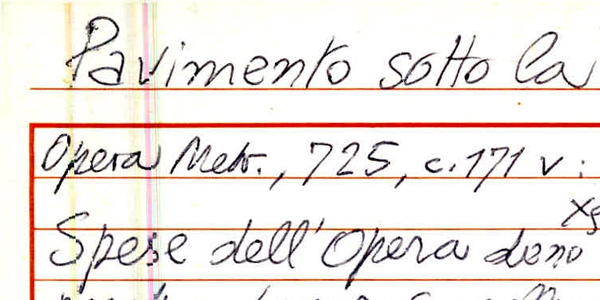 Pavimento sotto la
Opera Metr., 725, c. 171 v :
Spese dell'Opera deno